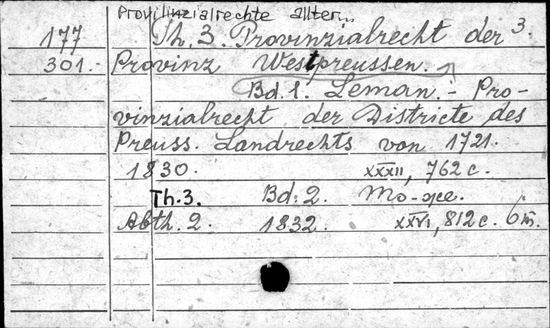 Provinzialrechte aller...
177 Th. 3. Provinzialrecht der 3.
301.- Provinz Westpreussen.
Bd. 1. Leman. - Pro-
vinzialrecht der Districte des
Preuss. Landrechts von 1721.
1830. XXXII, 762 c.
Th.3. Bd. 2. То-же.
Abth. 2. 1832. XXVI, 812 c.